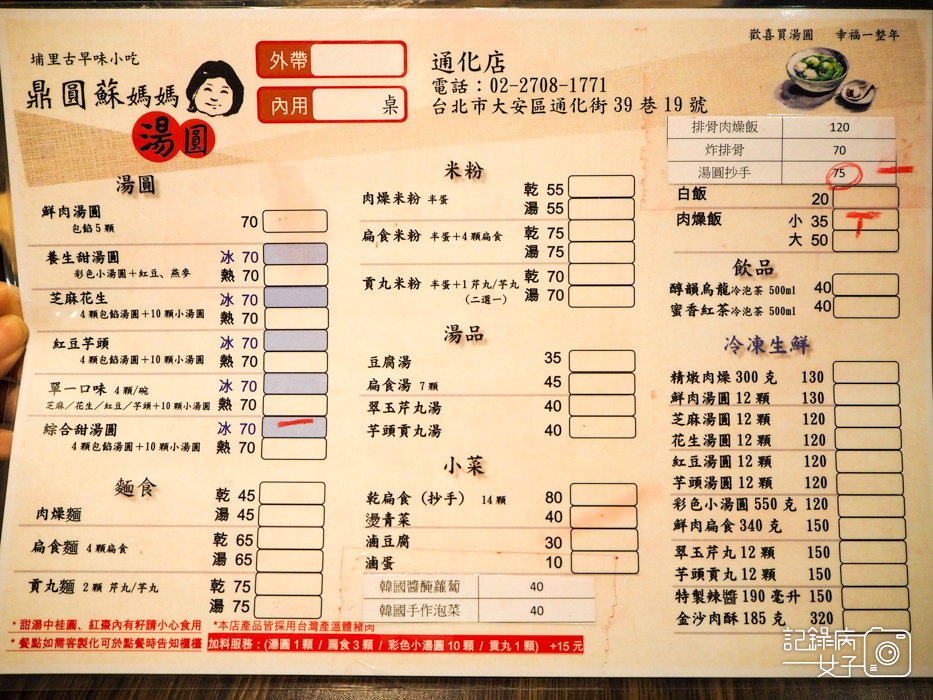 歡喜買湯圓 幸福一整年
埔里古早味小吃
鼎圓蘇媽媽
湯圓
外帶
內用 桌
通化店
電話：02-2708-1771
台北市大安區通化街39巷19號
湯圓
鮮肉湯圓 70
包餡5顆
養生甜湯圓 冰 70
彩色小湯圓+紅豆、燕麥 熱 70
芝麻花生 冰 70
4顆包餡湯圓+10顆小湯圓 熱 70
紅豆芋頭 冰 70
4顆包餡湯圓+10顆小湯圓 熱 70
單一口味 4顆/碗 冰 70
芝麻/花生/紅豆/芋頭+10顆小湯圓 熱 70
綜合甜湯圓 冰 70
4顆包餡湯圓+10顆小湯圓 熱 70
麵食
肉燥麵 乾 45
湯 45
扁食麵 4顆扁食 乾 65
湯 65
貢丸麵 2顆 芹丸/芋丸 乾 75
湯 75
米粉
肉燥米粉 半蛋 乾 55
湯 55
扁食米粉 半蛋+4顆扁食 乾 75
湯 75
貢丸米粉 半蛋+1芹丸/芋丸 乾 70
(二選一) 湯 70
湯品
豆腐湯 35
扁食湯 7顆 45
翠玉芹丸湯 40
芋頭貢丸湯 40
小菜
乾扁食（抄手） 14顆 80
燙青菜 40
滷豆腐 30
滷蛋 10
韓國醬醃蘿蔔 40
韓國手作泡菜 40
排骨肉燥飯 120
炸排骨 70
湯圓抄手 75
白飯 20
肉燥飯 小 35
大 50
飲品
醇韻烏龍冷泡茶 500ml 40
蜜香紅茶冷泡茶 500ml 40
冷凍生鮮
精燉肉燥 300克 130
鮮肉湯圓 12顆 130
芝麻湯圓 12顆 120
花生湯圓 12顆 120
紅豆湯圓 12顆 120
芋頭湯圓 12顆 120
彩色小湯圓 550克 120
鮮肉扁食 340克 150
翠玉芹丸 12顆 150
芋頭貢丸 12顆 150
特製辣醬 190毫升 150
金沙肉酥 185克 320
*甜湯中桂圓、紅棗內有籽請小心食用 *本店產品皆採用台灣產溫體豬肉
*餐點如需客製化可於點餐時告知櫃檯 加料服務：(湯圓1顆 / 扁食3顆 / 彩色小湯圓10顆 / 貢丸1顆) +15元
記錄病女子